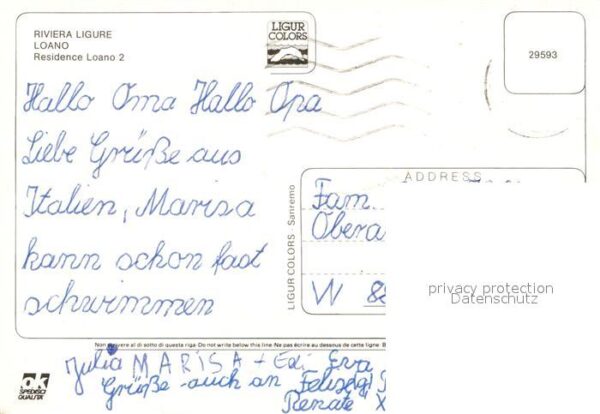 RIVIERA LIGURE
LOANO
Residence Loano 2
LIGUR
COLORS
29593
Hallo Oma Hallo Opa
Liebe Grüße aus
Italien, Marisa
kann schon fast
schwimmen
ADDRESS
Fam.
Obera
W 82
LIGUR COLORS Sanremo
privacy protection
Datenschutz
Non scrivere al di sotto di questa riga - Do not write below this line - Ne pas écrire au dessous de cette ligne
Julia MARISA + Edi Eva
Grüße auch an
Renate
OK
SPEDISCI
QUALITÀ